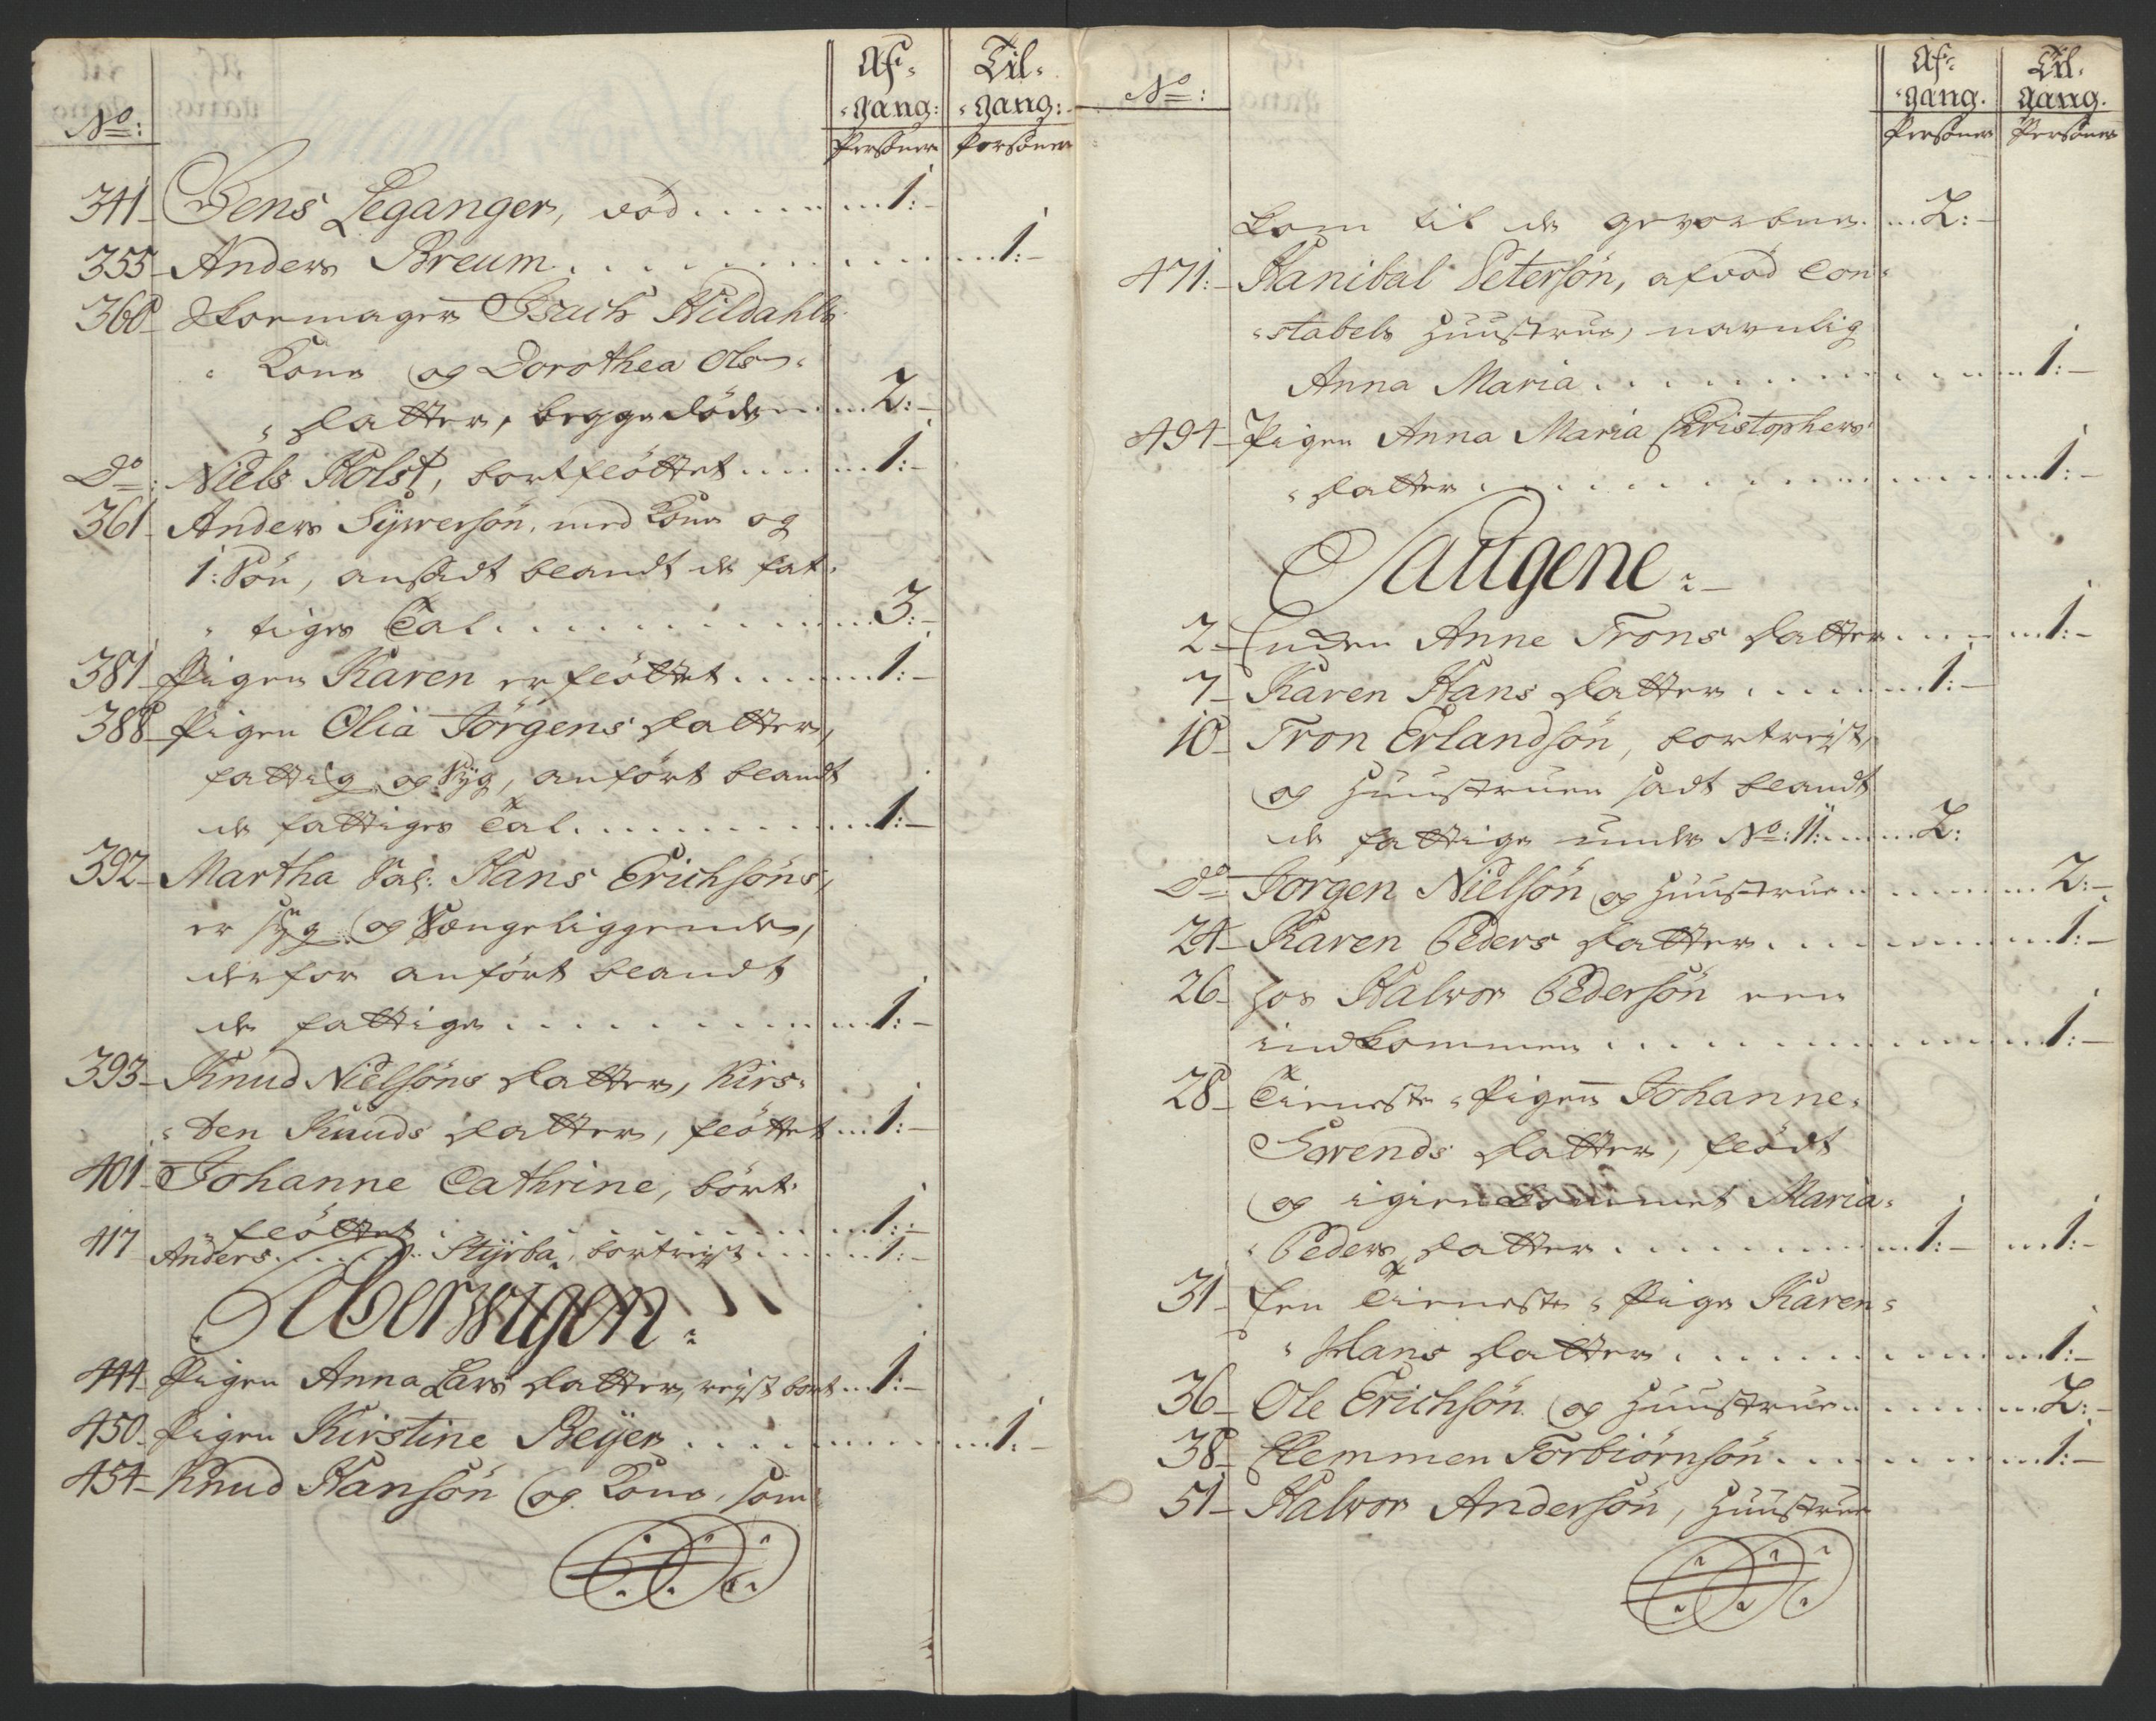 No:
Af-
-gang:
Personer
Til-
-gang:
Personer
341 Jens Leganger, død 1:-
355 Anders Breum 1:-
360 Skomager Isach Hildahls
Kone og Dorothea Ols-
Datter, begge døde 2:-
Do: Niels Holst, bortfløttet 1:-
361 Anders Sywersøn, med Kone og
1: Søn, ansadt blandt de fat-
tiges Tal 3:-
381 Pigen Karen er fløttet 1:-
388 Pigen Olia Jörgens Datter,
fattig og Syg, anført blandt
de fattiges Tal 1:-
392 Martha Sal: Hans Erichsøns,
er syg og Sængeliggende,
derfor anført blandt
de fattige 1:-
393 Knud Nielsøns Datter, Kirs-
-ten Knuds Datter, fløttet 1:-
401 Johanne Cathrine, bort-
fløttet 1:-
417 Anders Styrba, bortreyst 1:-
Elverwigen:
444 Pigen Anna Lars Datter, reyst bort 1:-
450 Pigen Kirstine Beÿer 1:-
454 Knud Hansøn og Kone, som
No:
Af-
-gang.
Personer
Til-
gang.
Personer
kom til de geworbne 2:-
471:- Hanibal Petersøn, afdød Con-
-stabels Huustrue, navnlig
Anna Maria 1:-
494 Pigen Anna Maria Christophers-
-Datter 1:-
Saugene:-
2 Enken Anne Trons Datter 1:-
7 Karen Hans Datter 1:-
10 Tron Erlandsøn, bortreyst,
og Huustruen sadt blandt
de fattige under No: 11: 2:
Do Jörgen Nielsøn og Huustrue 2:-
24 Karen Peders Datter 1:-
26 hos Halvor Pedersøn een
indkommen 1:-
28 Tieneste-Pigen Johanne-
Swends Datter, flödt
og igien kommet Maria-
Peders Datter 1:- 1:-
31 Een Tieneste-Pige Karen-
-Hans Datter 1:-
36 Ole Erichsøn og Huustrue 2:-
38 Clemmen Torbiørnsøn 1:-
51 Halvor Andersøn, Huustrue